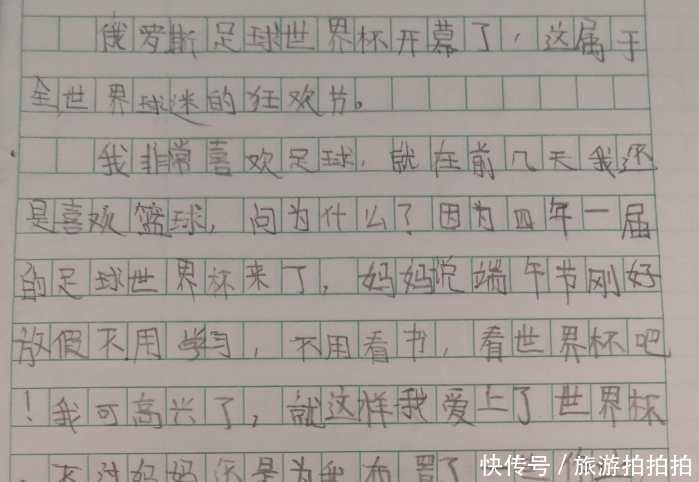 俄罗斯足球世界杯开幕了，这属于
全世界球迷的狂欢节。
我非常喜欢足球，就在前几天我还
是喜欢篮球，问为什么？因为四年一届
的足球世界杯来了，妈妈说端午节刚好
放假不用学习，不用看书，看世界杯吧
！我可高兴了，就这样我爱上了世界杯
。不过妈妈还是为我布置了
快传号／旅游拍拍拍拍